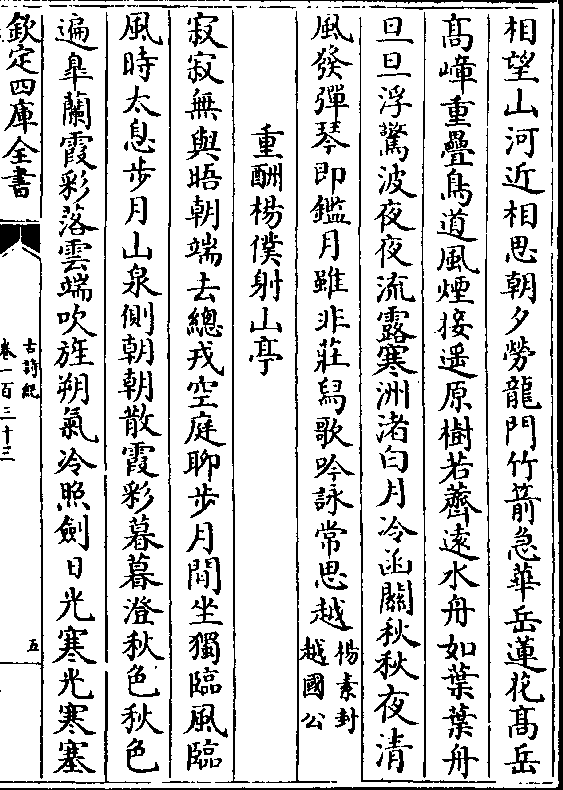 相望山河近相思朝夕勞龍門竹箭急華岳蓮花髙岳
髙嶂重疊鳥道風煙接遥原樹若薺逺水舟如葉葉舟
旦旦浮驚波夜夜流露寒洲渚白月冷函關秋秋夜清
風發彈琴即鑑月雖非莊舄歌吟詠常思越楊素封越國公
重酬楊僕射山亭
寂寂無與晤朝端去總戎空庭聊步月閒坐獨臨風臨
風時太息步月山泉側朝朝散霞彩暮暮澄秋色秋色
遍臯蘭霞彩落雲端吹旌朔氣冷照劍日光寒光寒塞
欽定四庫全書
古詩紀
卷一百三十三
五